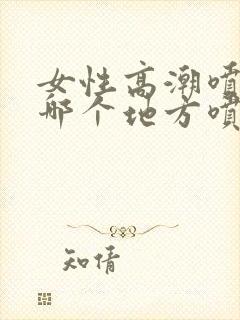 女性高潮喷
哪个地方喷
知情